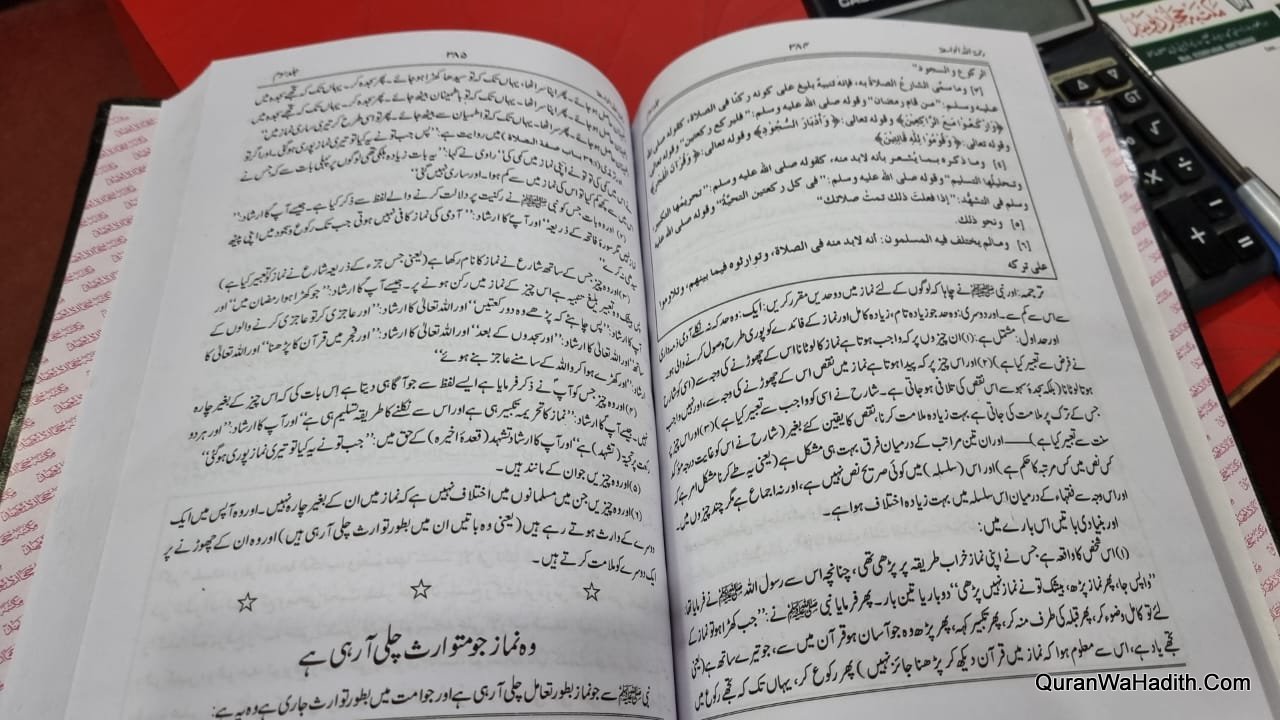 رحمۃ اللہ الواسعۃ
۳۸۴
الركوع والسجود"
[۳] وما سمَّى الشارعُ الصلاةَ به، فإنه تنبيهٌ بليغٌ على كونه ركنًا في الصلاة، كقوله صلى الله
عليه وسلم: "من قام رمضان" وقوله صلى الله عليه وسلم: "فليركع ركعتين" وقوله تعالى:
﴿وَارْكَعُوْا مَعَ الرَّاكِعِيْنَ﴾ وقوله تعالى: ﴿وَأَدْبَارَ السُّجُوْدِ﴾ وقوله تعالى: ﴿وَقُرْآنَ الْفَجْرِ﴾
وقوله تعالى: ﴿وَقُوْمُوْا لِلّٰهِ قَانِتِيْنَ﴾
[۴] وما ذكره بما يُشعر بأنه لابد منه، كقوله صلى الله عليه وسلم: "تحريمها التكبير
وتحليلها التسليم" وقوله صلى الله عليه وسلم: "فى كل ركعتين التحيَّةُ" وقوله صلى الله عليه
وسلم فى التشهُّد: "إذا فعلتَ ذلك تمتْ صلاتك"
[۵] ونحو ذلك.
[۶] ومالم يختلف فيه المسلمون: أنه لابد منه فى الصلاة، وتوارثوه فيما بينهم، وتلاوموا
على تركه
ترجمہ: اور نبی ﷺ نے چاہا کہ لوگوں کے لئے نماز میں دو حدیں مقرر کریں: ایک: وہ حد کہ نہ نکلے آدمی ذمہ داری
سے اس سے کم سے ــ اور دوسری: وہ حد جو زیادہ تام، زیادہ کامل اور نماز کے فائدے کو پوری طرح وصول کرنے والی ہو۔
اور حد اول: مشتمل ہے: (۱) ان چیزوں پر کہ واجب ہوتا ہے نماز کا لوٹانا اس کے چھوڑنے کی وجہ سے (اسی کو شارع
نے فرض سے تعبیر کیا ہے) (۲) اور اس چیز پر کہ پیدا ہوتا ہے نماز میں نقص اس کے چھوڑنے کی وجہ سے، اور نہیں واجب
ہوتا لوٹانا (بلکہ سجدۂ سہو سے اس نقص کی تلافی ہو جاتی ہے۔ شارح نے اسی کو واجب سے تعبیر کیا ہے) (۳) اور اس چیز پر
جس کے ترک پر ملامت کی جاتی ہے، بہت زیادہ ملامت کرنا، نقص کا یقین کئے بغیر (شارح نے اس کو
سنت سے تعبیر کیا ہے) ــ اور ان تین مراتب کے درمیان فرق بہت ہی مشکل ہے (یعنی یہ طے کرنا مشکل امر ہے کہ
کس نص میں کس مرتبہ کا حکم ہے) اور اس (سلسلہ) میں کوئی صریح نص نہیں ہے، اور نہ اجماع ہے مگر چند چیزوں میں۔
اور اس وجہ سے فقہاء کے درمیان اس سلسلہ میں بہت زیادہ اختلاف ہوا ہے۔
اور بنیادی باتیں اس بارے میں:
(۱) اس شخص کا واقعہ ہے: جس نے اپنی نماز خراب طریقہ پر پڑھی تھی، چنانچہ اس سے رسول اللہ ﷺ نے فرمایا تھا:
"واپس جا، پھر نماز پڑھ، بیشک تو نے نماز نہیں پڑھی" دو بار یا تین بار۔ پھر فرمایا نبی ﷺ نے: "جب کھڑا ہو تو نماز کے
لئے تو کامل وضو کر، پھر قبلہ کی طرف منہ کر، پھر تکبیر کہہ، پھر پڑھ وہ جو آسان ہو قرآن میں سے، جو تیرے ساتھ ہے (یعنی
تجھے یاد ہے، اس سے معلوم ہوا کہ نماز میں قرآن دیکھ کر پڑھنا جائز نہیں) پھر رکوع کر، یہاں تک کہ تجھے رکوع میں
۳۸۵
جلد سوم
اطمینان ہو جائے۔ پھر اپنا سر اٹھا، یہاں تک کہ تو سیدھا کھڑا ہو جائے۔ پھر سجدہ کر، یہاں تک کہ تجھے سجدہ میں
اطمینان ہو جائے۔ پھر سر اٹھا، یہاں تک کہ تو باطمینان بیٹھ جائے۔ پھر سجدہ کر، یہاں تک کہ تجھے سجدہ میں
اطمینان ہو جائے۔ پھر سر اٹھا۔ یہاں تک کہ تو اطمینان سے بیٹھ جائے۔ پھر تو اسی طرح کر تیری ساری نماز میں"
باب صفة الصلاة) میں روایت ہے: "پس جب تو نے یہ کیا تو تیری نماز پوری ہوگئی۔ اور اگر تو
نے اس میں کمی کی تو تو نے اپنی نماز میں کمی کی" راوی نے کہا: "یہ بات زیادہ ہلکی تھی لوگوں پر پہلی بات سے کہ جس نے
اس میں سے کچھ کم کیا تو اس کی نماز میں سے کم ہوا۔ اور ساری نہیں گئی"
(۲) اور وہ بات جس کو نبی ﷺ نے رکنیت پر دلالت کرنے والے لفظ سے ذکر کیا ہے۔ جیسے آپؐ کا ارشاد: "
نماز نہیں مگر سورۂ فاتحہ کے ذریعہ" اور آپؐ کا ارشاد: "آدمی کی نماز کافی نہیں ہوتی جب تک رکوع و سجود میں اپنی پیٹھ
سیدھی نہ کرے"
(۳) اور وہ چیز جس کے ساتھ شارع نے نماز کا نام رکھا ہے (یعنی جس جزء کے ذریعہ شارع نے نماز کو تعبیر کیا ہے)
پس بیشک وہ تعبیر بلیغ تنبیہ ہے اس چیز کے نماز میں رکن ہونے پر۔ جیسے آپؐ کا ارشاد: "جو کھڑا ہوا رمضان میں" اور
آپؐ کا ارشاد: "پس چاہئے کہ پڑھے وہ دو رکعتیں" اور اللہ تعالیٰ کا ارشاد: "اور عاجزی کرو تم عاجزی کرنے والوں کے
ساتھ" اور اللہ تعالیٰ کا ارشاد: "اور سجدوں کے بعد" اور اللہ تعالیٰ کا ارشاد: "اور فجر میں قرآن کا پڑھنا" اور اللہ تعالیٰ کا
ارشاد: "اور کھڑے ہوا کرو اللہ کے سامنے عاجز بنے ہوئے"
(۴) اور وہ چیز جس کو آپؐ نے ذکر فرمایا ہے ایسے لفظ سے جو آگاہی دیتا ہے اس بات کی کہ اس چیز کے بغیر چارہ
نہیں۔ جیسے آپؐ کا ارشاد: "نماز کا تحریمہ تکبیر ہی ہے اور اس سے نکلنے کا طریقہ تسلیم ہی ہے" اور آپؐ کا ارشاد: "اور ہر دو
رکعت پر تحیۃ (تشہد) ہے" اور آپؐ کا ارشاد تشہد (قعدۂ اخیرہ) کے حق میں: "جب تو نے یہ کیا تو تیری نماز پوری ہوگئی"
(۵) اور وہ چیزیں جو ان کے مانند ہیں۔
(۶) اور وہ چیزیں جن میں مسلمانوں میں اختلاف نہیں ہے کہ نماز میں ان کے بغیر چارہ نہیں۔ اور وہ آپس میں ایک
دوسرے کے وارث ہوتے رہے ہیں (یعنی وہ باتیں ان میں بطور توارث چلی آرہی ہیں) اور وہ ان کے چھوڑنے پر
ایک دوسرے کو ملامت کرتے ہیں۔
وہ نماز جو متوارث چلی آرہی ہے
نبی ﷺ سے جو نماز بطور تعامل چلی آرہی ہے اور جو امت میں بطور توارث جاری ہے وہ یہ ہے:
GT
QuranWaHadith.Com